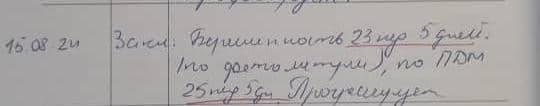 15.08.24 Закл: Беременность 23 нед 5 дней.
(по фетометрии), по ПДМ
25 нед 5 дн. Прогрессирует